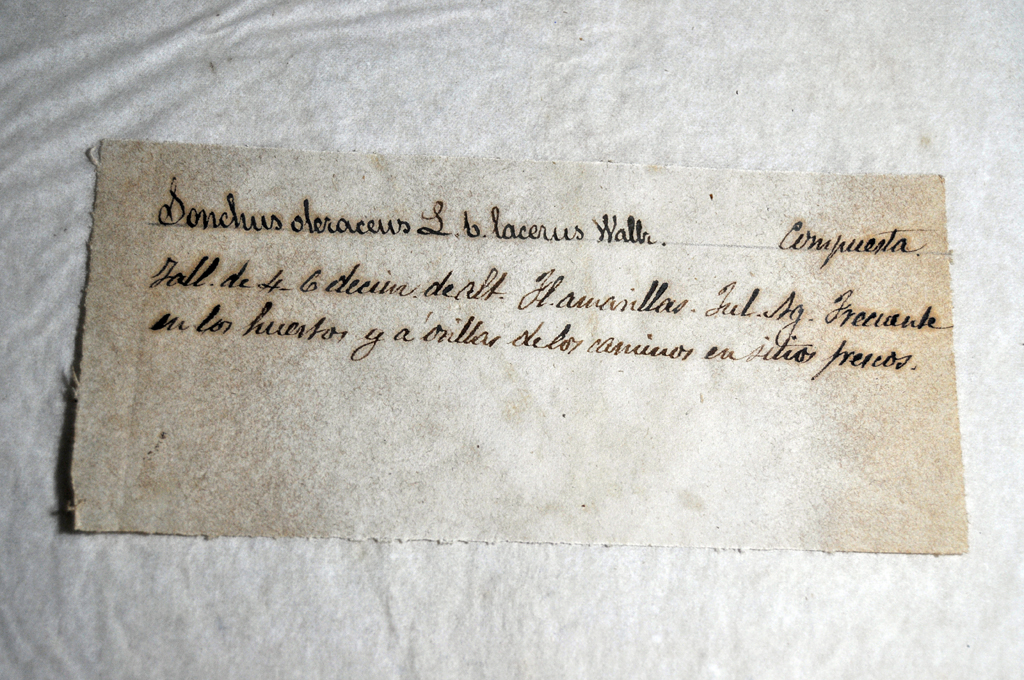 Sonchus oleraceus L. b. lacerus Wallr. Compuesta.
Tall. de 4 6 decim. de alt. Fl. amarillas. Jul. Ag. Frecuente
en los huertos y á orillas de los caminos en sitios frescos.